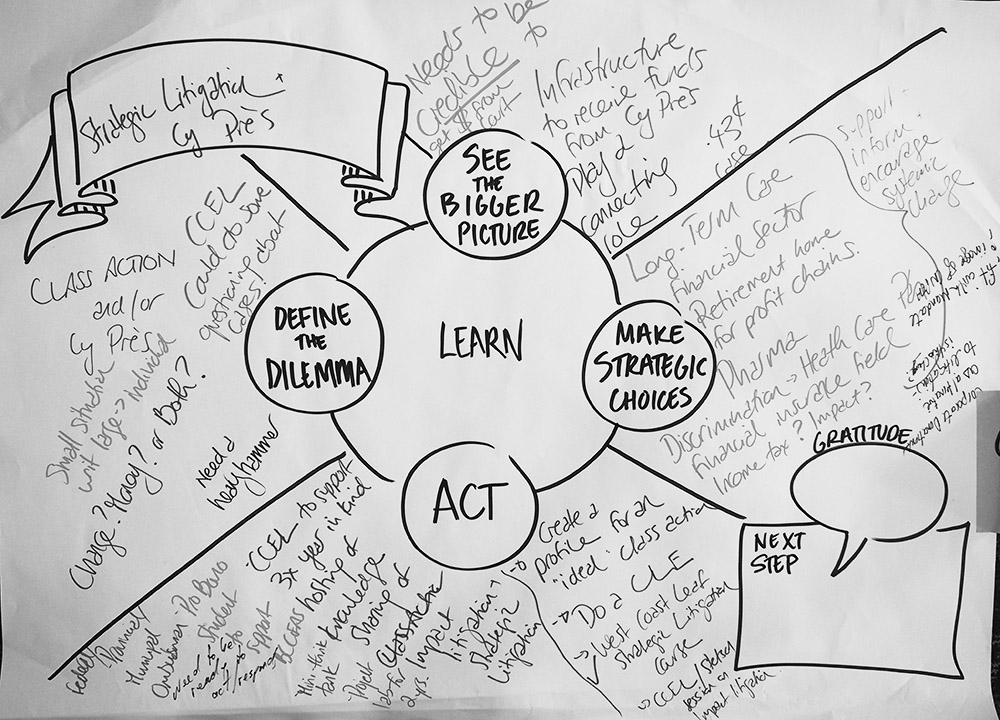 Strategic Litigation +
Cy Près
Needs to be
credible to
get $ from
Infrastructure
to receive funds
from Cy Près
Play a
connecting
role
.43¢
case
SEE
THE
BIGGER
PICTURE
CLASS ACTION
and/or
Cy Près
Small situation
writ large → individual
Change? Money? or Both?
CCEL
Could ct to some
questioning about
cases?
Need a
heavy hammer
DEFINE
THE
DILEMMA
LEARN
MAKE
STRATEGIC
CHOICES
Long-Term Care
Financial Sector
Retirement home
for profit chains.
Pharma
Discrimination → Heath Care
financial insurance field
Income tax? Impact?
Support -
inform -
encourage
systemic
change
ACT
Municipal
Ombudsman
Pro Bono
Student
Support
need to be
ready to
act/respond
CCEL to support
3x year in kind
hosting of
knowledge
sharing of
Class Action
Impact
litigation +
Strategic
Litigation
Mini-think
tank
→ Create a
profile for an
"ideal" class action
→ Do a CLE
→ West Coast Leaf
Strategic Litigation
course
→ CCEL
session on
Impact litigation
GRATITUDE
NEXT
STEP